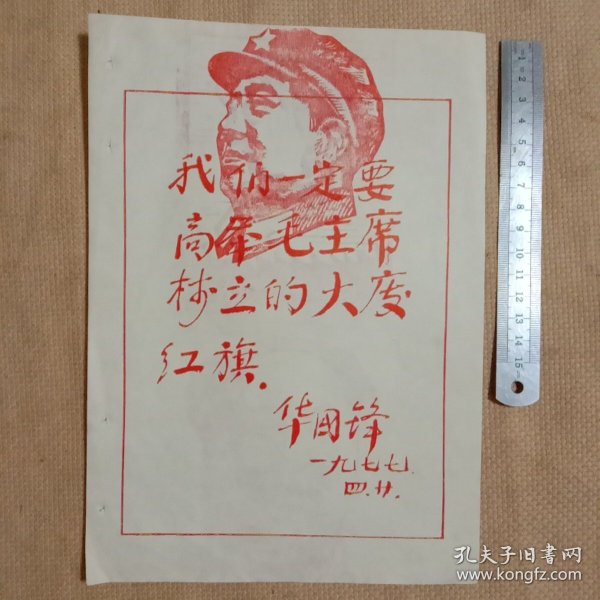 我们一定要
高举毛主席
树立的大庆
红旗.
华国锋
一九七七.
四.廿.
1 2 3 4 5 6 7 8 9 10 11 12 13 14 15
孔夫子旧書网
www.kongfz.com